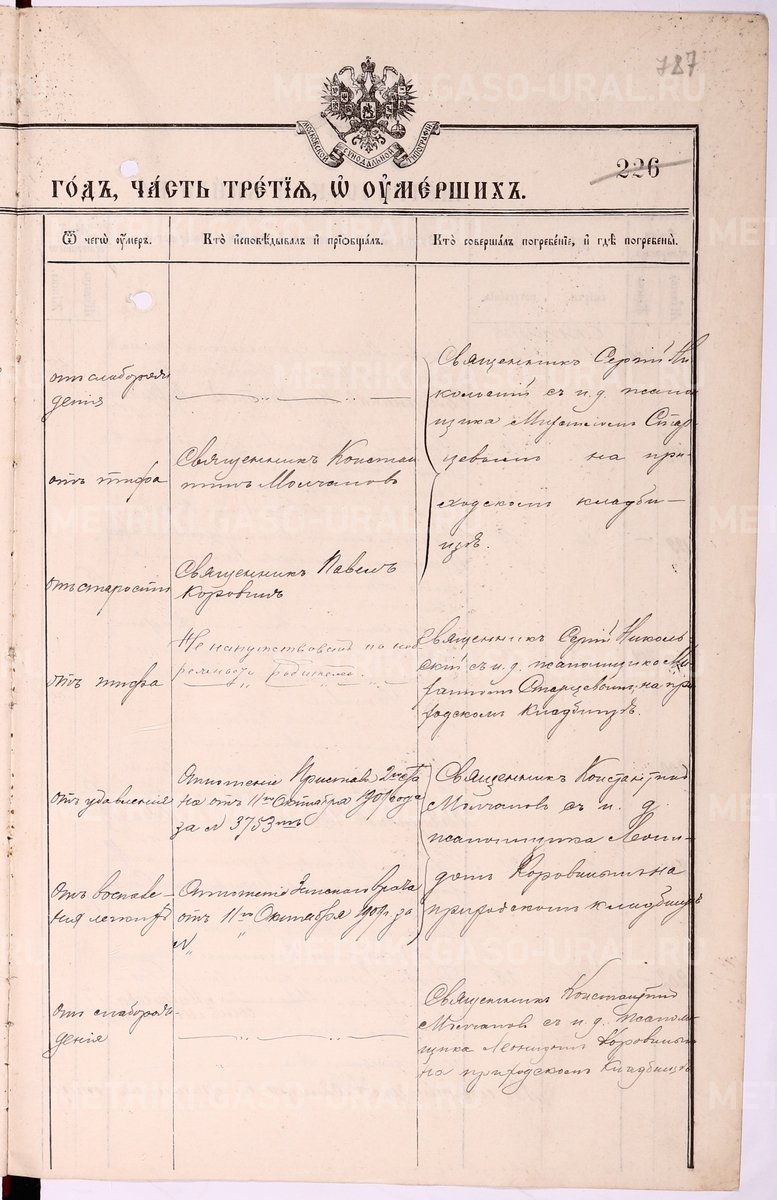 787
МОСКОВСКОЙ СѴНОДАЛЬНОЙ ТИПОГРАФІИ
226
го́дъ, ча́сть тре́тїѧ, ѡ҆ ᲂу҆ме́ршихъ.
Ѿ чегѡ̀ ᲂу҆́меръ.
Кто̀ и҆сповѣ́дывалъ и҆ прїѡбща́лъ.
Кто̀ соверша́лъ погребе́нїе, и҆ гдѣ̀ погребены̀.
отъ слаборож
денія
Священникъ Сергій Ни
кольскій съ и. д. псалом
щика Михаиломъ Стар
цевымъ на при
ходскомъ кладби-
щѣ.
отъ тифа
Священникъ Констан
тинъ Молчановъ
отъ старости
Священникъ Павелъ
Коровинъ
отъ тифа
Не напутствованъ по
родителей.
Священникъ Сергій Николь
скій съ и. д. псаломщика
Старцевымъ на при
ходскомъ кладбищѣ.
отъ удавленія
Отношеніе Пристава 2го ста
на отъ 11го Октября 1901 года
за № 3753мъ
Священникъ Константинъ
Молчановъ съ и. д.
псаломщика Леони
домъ Коровинымъ на
приходскомъ кладбищѣ
отъ воспале-
нія легкихъ
Отношеніе Земскаго Врача
отъ 11го Октября 1901 г. за
№
отъ слаборож-
денія
Священникъ Константинъ
Молчановъ съ и. д. псалом-
щика Леонидомъ Коровинымъ
на приходскомъ кладбищѣ
METRIKI.GASO-URAL.RU